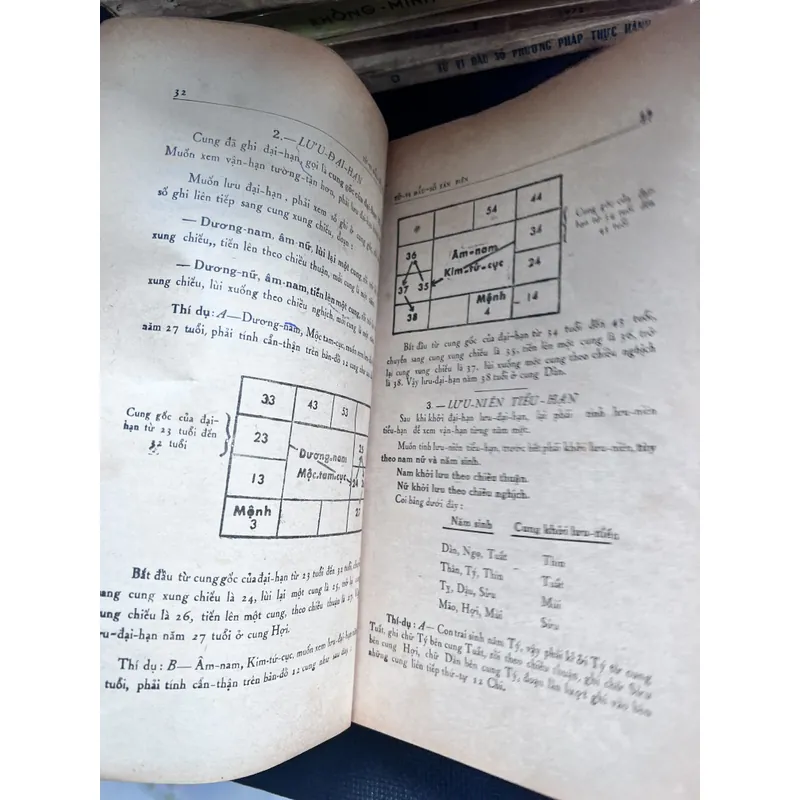 KHỔNG-MINH
TỬ VI ĐẨU SỐ PHƯƠNG PHÁP THỰC HÀNH
32
2.— LƯU-ĐẠI-HẠN
Cung đã ghi đại-hạn, gọi là cung gốc của đại-hạn
Muốn xem vận-hạn tường-tận hơn, phải lưu đại-hạn
Muốn lưu đại-hạn, phải xem số ghi ở cung gốc
số ghi liên tiếp sang cung xung chiếu, đoạn :
— Dương-nam, âm-nữ, lùi lại một cung,
xung chiếu,, tiến lên theo chiều thuận, mỗi cung là một năm
— Dương-nữ, âm-nam, tiến lên một cung,
xung chiếu, lùi xuống theo chiều nghịch, mỗi cung là một năm
Thí dụ : A—Dương-nam, Mộc tam-cục, muốn xem
năm 27 tuổi, phải tính cẩn-thận trên bản-đồ 12 cung như sau
Cung gốc của đại-
hạn từ 23 tuổi đến
32 tuổi
33 43 53
23 25
Dương-nam
Mộc.tam.cục
13 24
Mệnh
3
27
Bắt đầu từ cung gốc của đại-hạn từ 23 tuổi đến 32 tuổi
sang cung xung chiếu là 24, lùi lại một cung là 25, trở lại cung
xung chiếu là 26, tiến lên một cung, theo chiều thuận là 27.
lưu-đại-hạn năm 27 tuổi ở cung Hợi.
Thí dụ : B— Âm-nam, Kim-tứ-cục, muốn xem lưu-đại-hạn
tuổi, phải tính cẩn-thận trên bản-đồ 12 cung như sau đây :
33
TỬ-VI ĐẨU-SỐ TÂN BIÊN
54 44
36 34
Âm-nam
Kim-tứ-cục
37 35 24
38
Mệnh
4
14
Cung gốc của đại-
hạn từ 34 tuổi đến
43 tuổi
Bắt đầu từ cung gốc của đại-hạn từ 34 tuổi đến 43 tuổi,
chuyển sang cung xung chiếu là 35, tiến lên một cung là 36, trở
lại cung xung chiếu là 37, lùi xuống một cung theo chiều nghịch
là 38. Vậy lưu-đại-hạn năm 38 tuổi ở cung Dần.
3.— LƯU-NIÊN TIỂU-HẠN
Sau khi khởi đại-hạn lưu-đại-hạn, lại phải tính lưu-niên
tiểu-hạn để xem vận-hạn từng năm một.
Muốn tính lưu-niên tiểu-hạn, trước hết phải khởi lưu-niên, tùy
theo nam nữ và năm sinh.
Nam khởi lưu theo chiều thuận.
Nữ khởi lưu theo chiều nghịch.
Coi bảng dưới đây :
Năm sinh Cung khởi lưu-niên
Dần, Ngọ, Tuất Thìn
Thân, Tý, Thìn Tuất
Tỵ, Dậu, Sửu Mùi
Mão, Hợi, Mùi Sửu
Thí-dụ : A— Con trai sinh năm Tý, vậy phải kể từ cung
Tuất, ghi chữ Tý bên cung Tuất, rồi theo chiều thuận, ghi chữ Sửu
bên cung Hợi, chữ Dần bên cung Tý, đoạn lần lượt ghi vào bên
những cung liên tiếp thứ-tự 12 Chi.